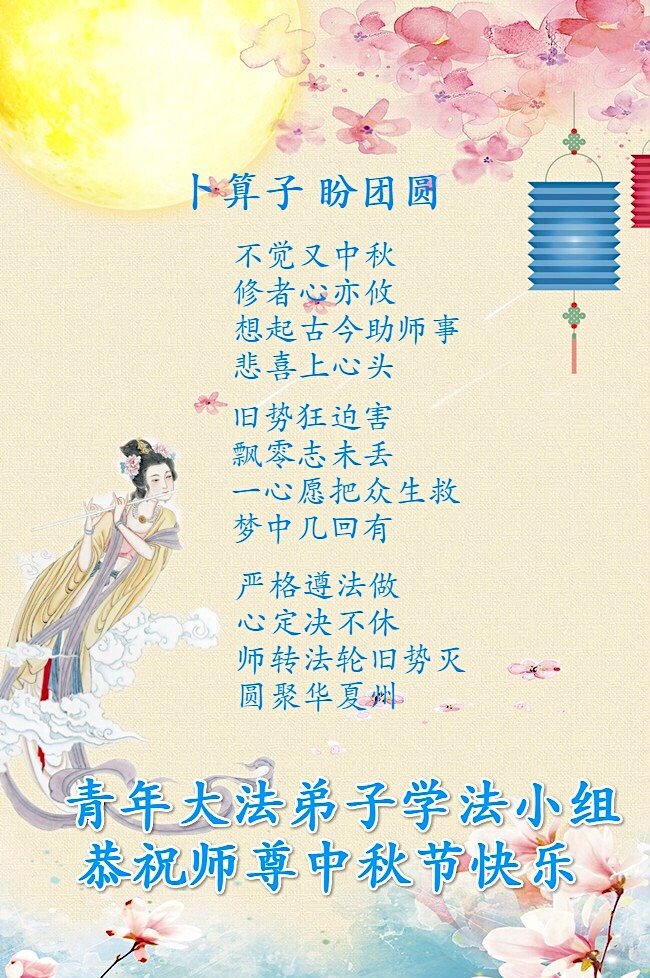 卜算子 盼团圆
不觉又中秋
修者心亦攸
想起古今助师事
悲喜上心头
旧势狂迫害
飘零志未丢
一心愿把众生救
梦中几回有
严格遵法做
心定决不休
师转法轮旧势灭
圆聚华夏州
青年大法弟子学法小组
恭祝师尊中秋节快乐